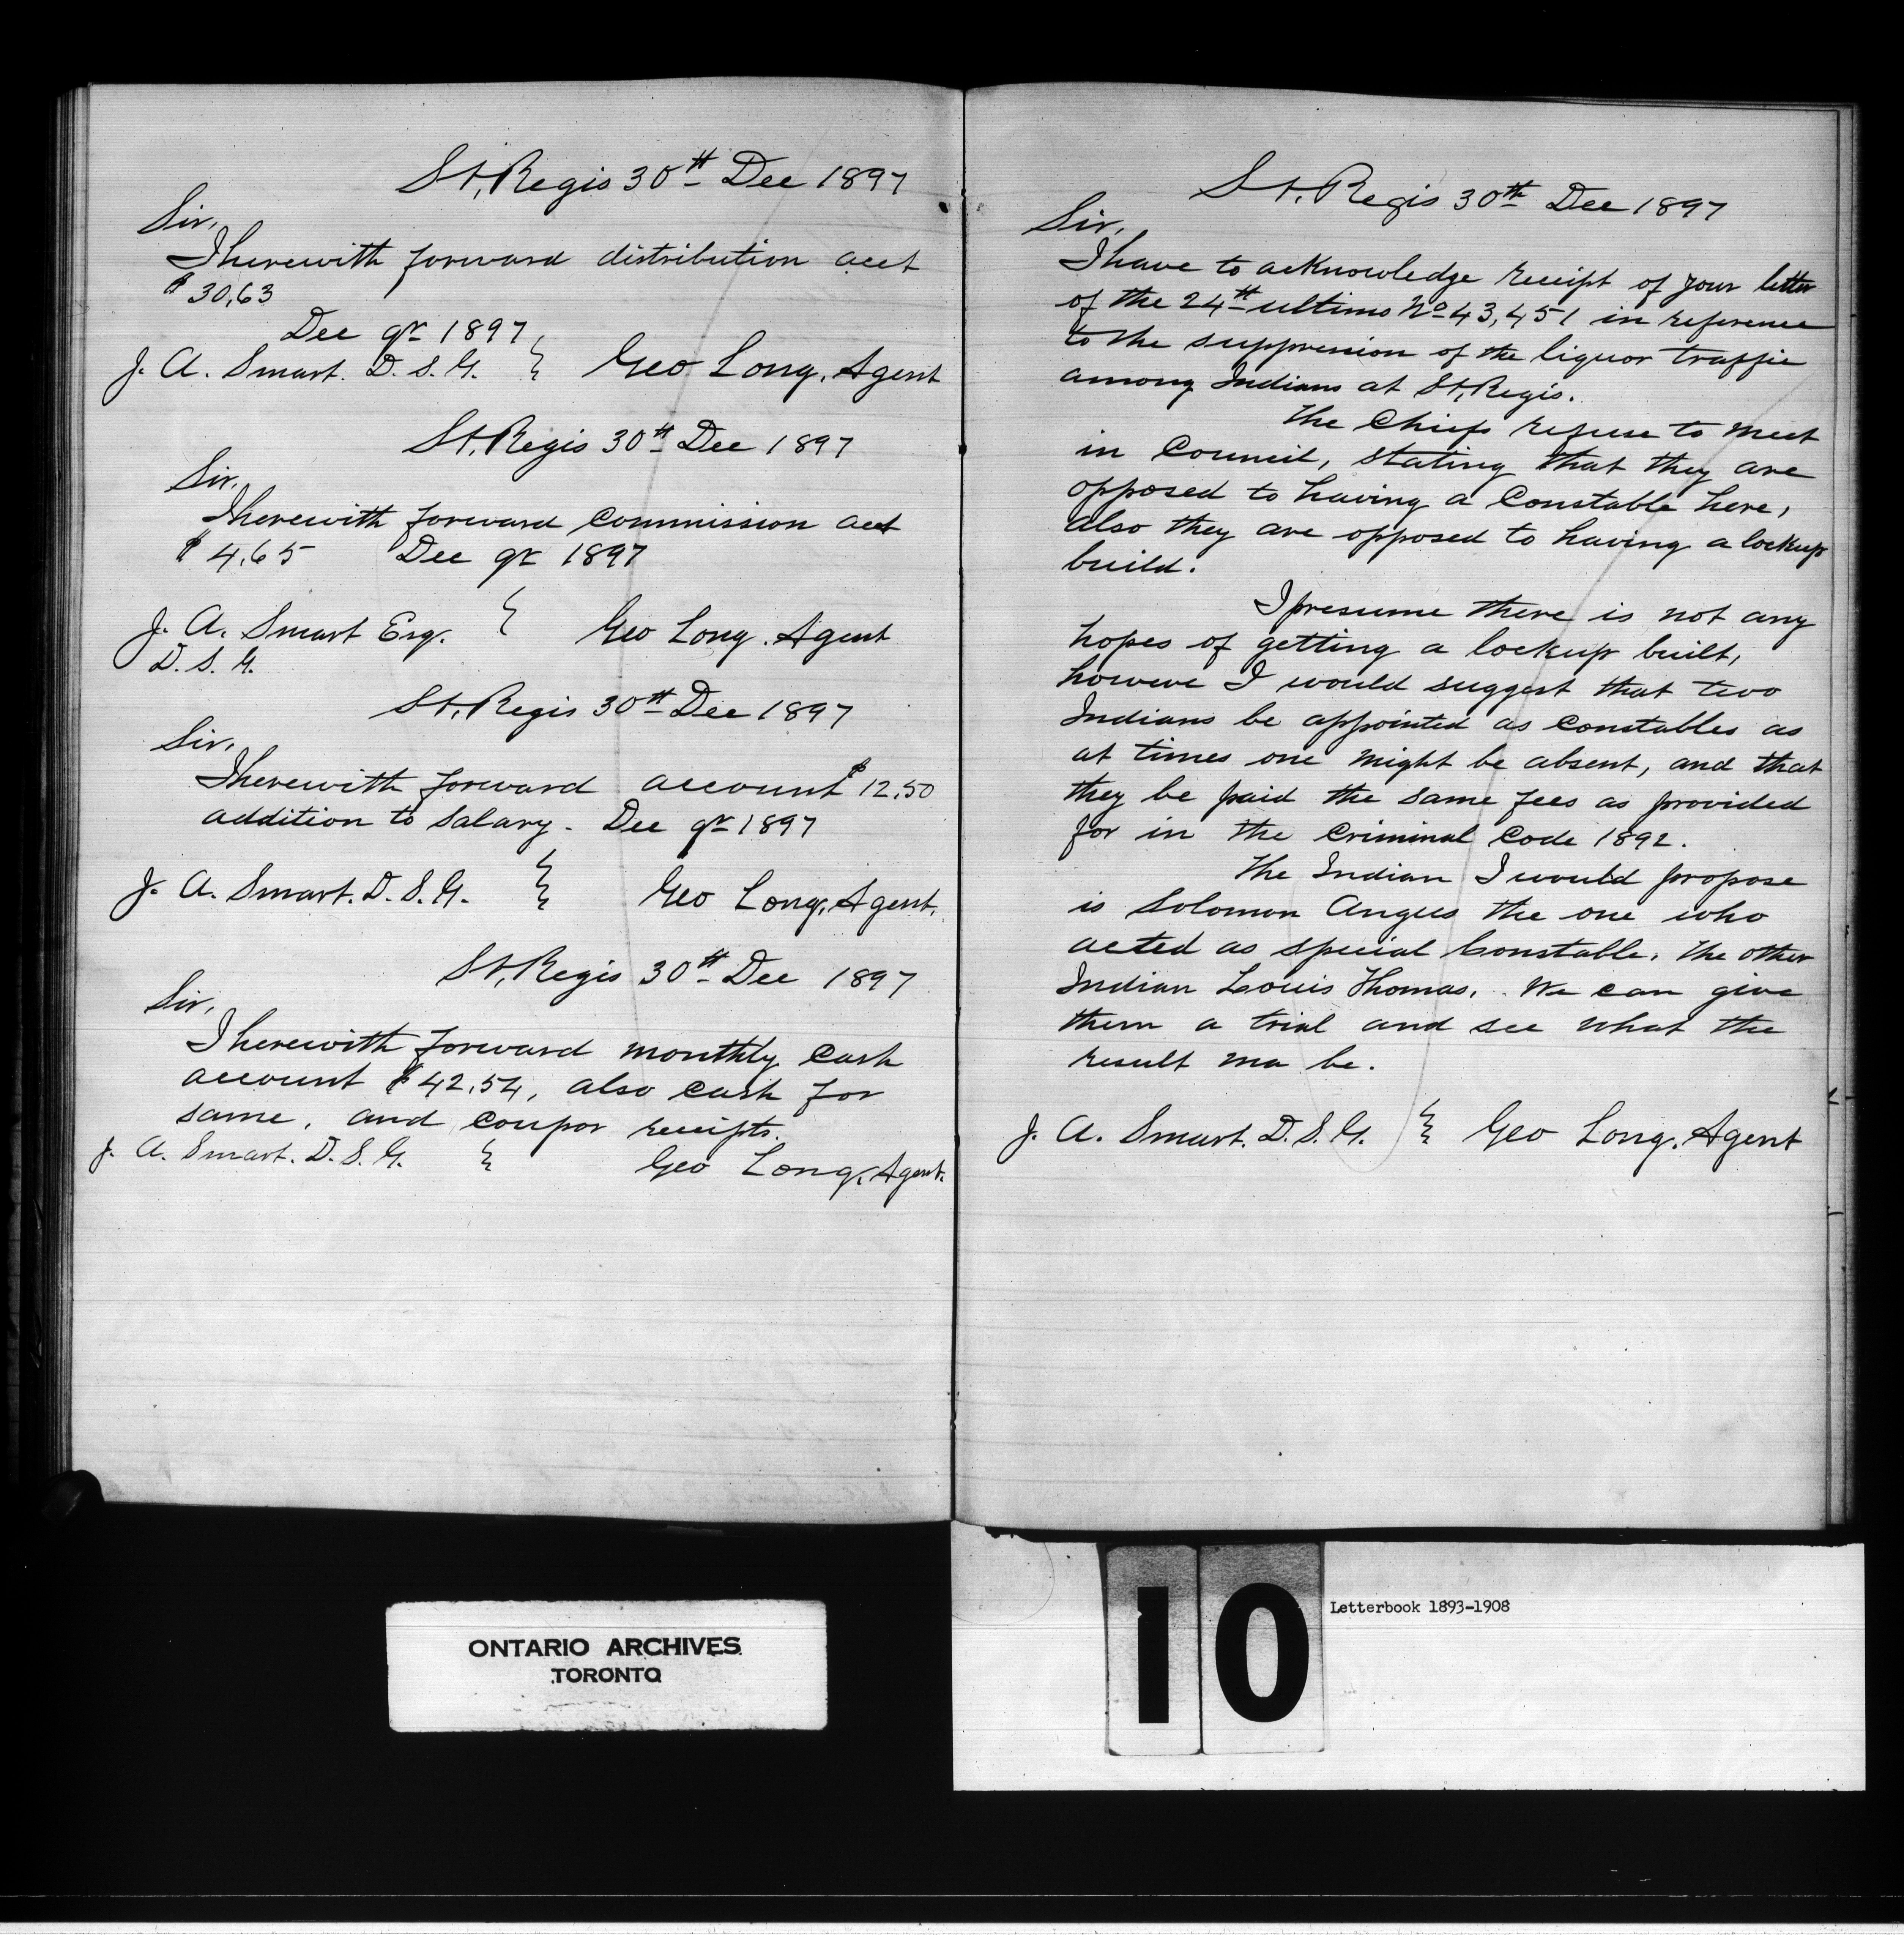 St. Regis 30th Dec 1897
Sir,
I herewith forward distribution acct
$30.63
Dec qr 1897
J. A. Smart. D. S. G. } Geo Long, Agent
St. Regis 30th Dec 1897
Sir,
I herewith forward commission acct
$4.65 Dec qr 1897
J. A. Smart Esq. } Geo Long. Agent
D. S. G.
St. Regis 30th Dec 1897
Sir,
I herewith forward account $12.50
addition to salary - Dec qr 1897
J. A. Smart. D. S. G. } Geo Long, Agent.
St. Regis 30th Dec 1897
Sir,
I herewith forward monthly cash
account $42.54, also cash for
same, and coupor receipts.
J. A. Smart. D. S. G. } Geo Long, Agent.
St. Regis 30th Dec 1897
Sir,
I have to acknowledge receipt of your letter
of the 24th ultimo No 43,451 in reference
to the suppression of the liquor traffic
among Indians at St. Regis.
The Chiefs refuse to meet
in Council, stating that they are
opposed to having a Constable here,
also they are opposed to having a lockup
build.
I presume there is not any
hopes of getting a lockup built,
howeve I would suggest that two
Indians be appointed as constables as
at times one might be absent, and that
they be paid the same fees as provided
for in the Criminal Code 1892.
The Indian I would propose
is Solomon Angus the one who
acted as special Constable. the other
Indian Louis Thomas. We can give
them a trial and see what the
result ma be.
J. A. Smart. D. S. G. } Geo Long, Agent
ONTARIO ARCHIVES
TORONTO
10
Letterbook 1893-1908